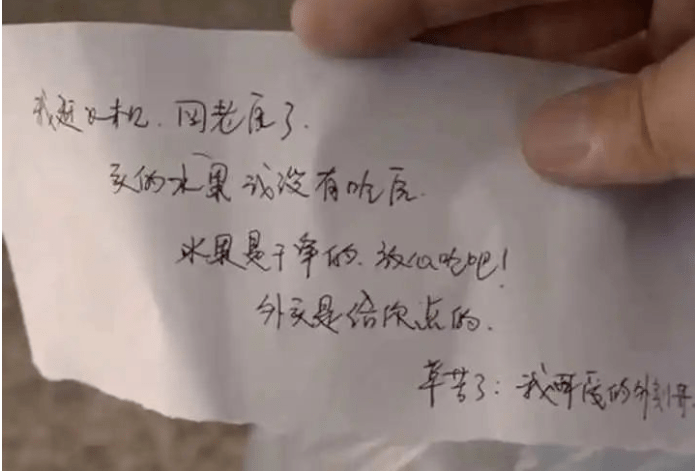 我赶飞机、回老家了.
买的水果我没有吃完.
水果是干净的、放心吃吧!
外卖是给你点的.
辛苦了:我